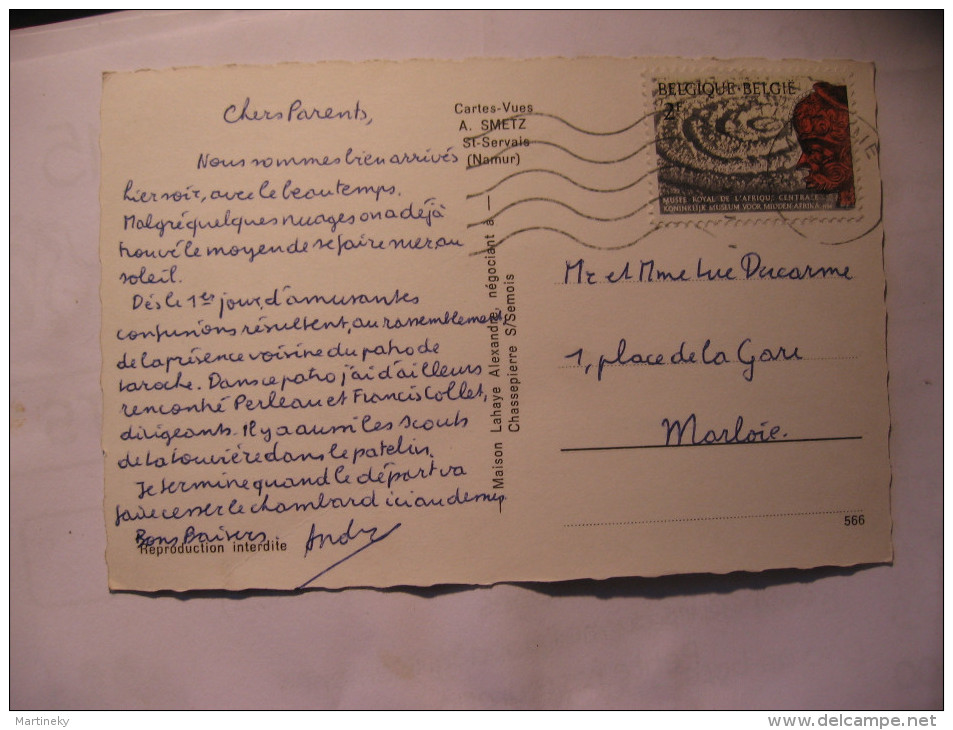 Chers Parents,
Nous sommes bien arrivés
hier soir, avec le beau temps.
Malgré quelques nuages on a déjà
trouvé le moyen de se faire suer au
soleil.
Dès le 1er jour, d'amusantes
confusions résultent, au rassemblement,
de la présence voisine du patro de
Laroche. Dans ce patro j'ai d'ailleurs
rencontré Perleau et Francis Collet,
dirigeants. Il y a aussi les scouts
de La Louvière dans le patelin.
Je termine quand le départ va
faire cesser le chambard ici au
Bons Baisers
Andy
Reproduction interdite
Cartes-Vues
A. SMETZ
St-Servais
(Namur)
Maison Lahaye Alexandre, négociant à
Chassepierre S/Semois
BELGIQUE·BELGIE
2F
MUSÉE ROYAL DE L'AFRIQUE CENTRALE
KONINKLIJK MUSEUM VOOR MIDDEN-AFRIKA
Mr et Mme Luc Ducarme
1, place de la Gare
Marloie.
566
Martineky
www.delcampe.net